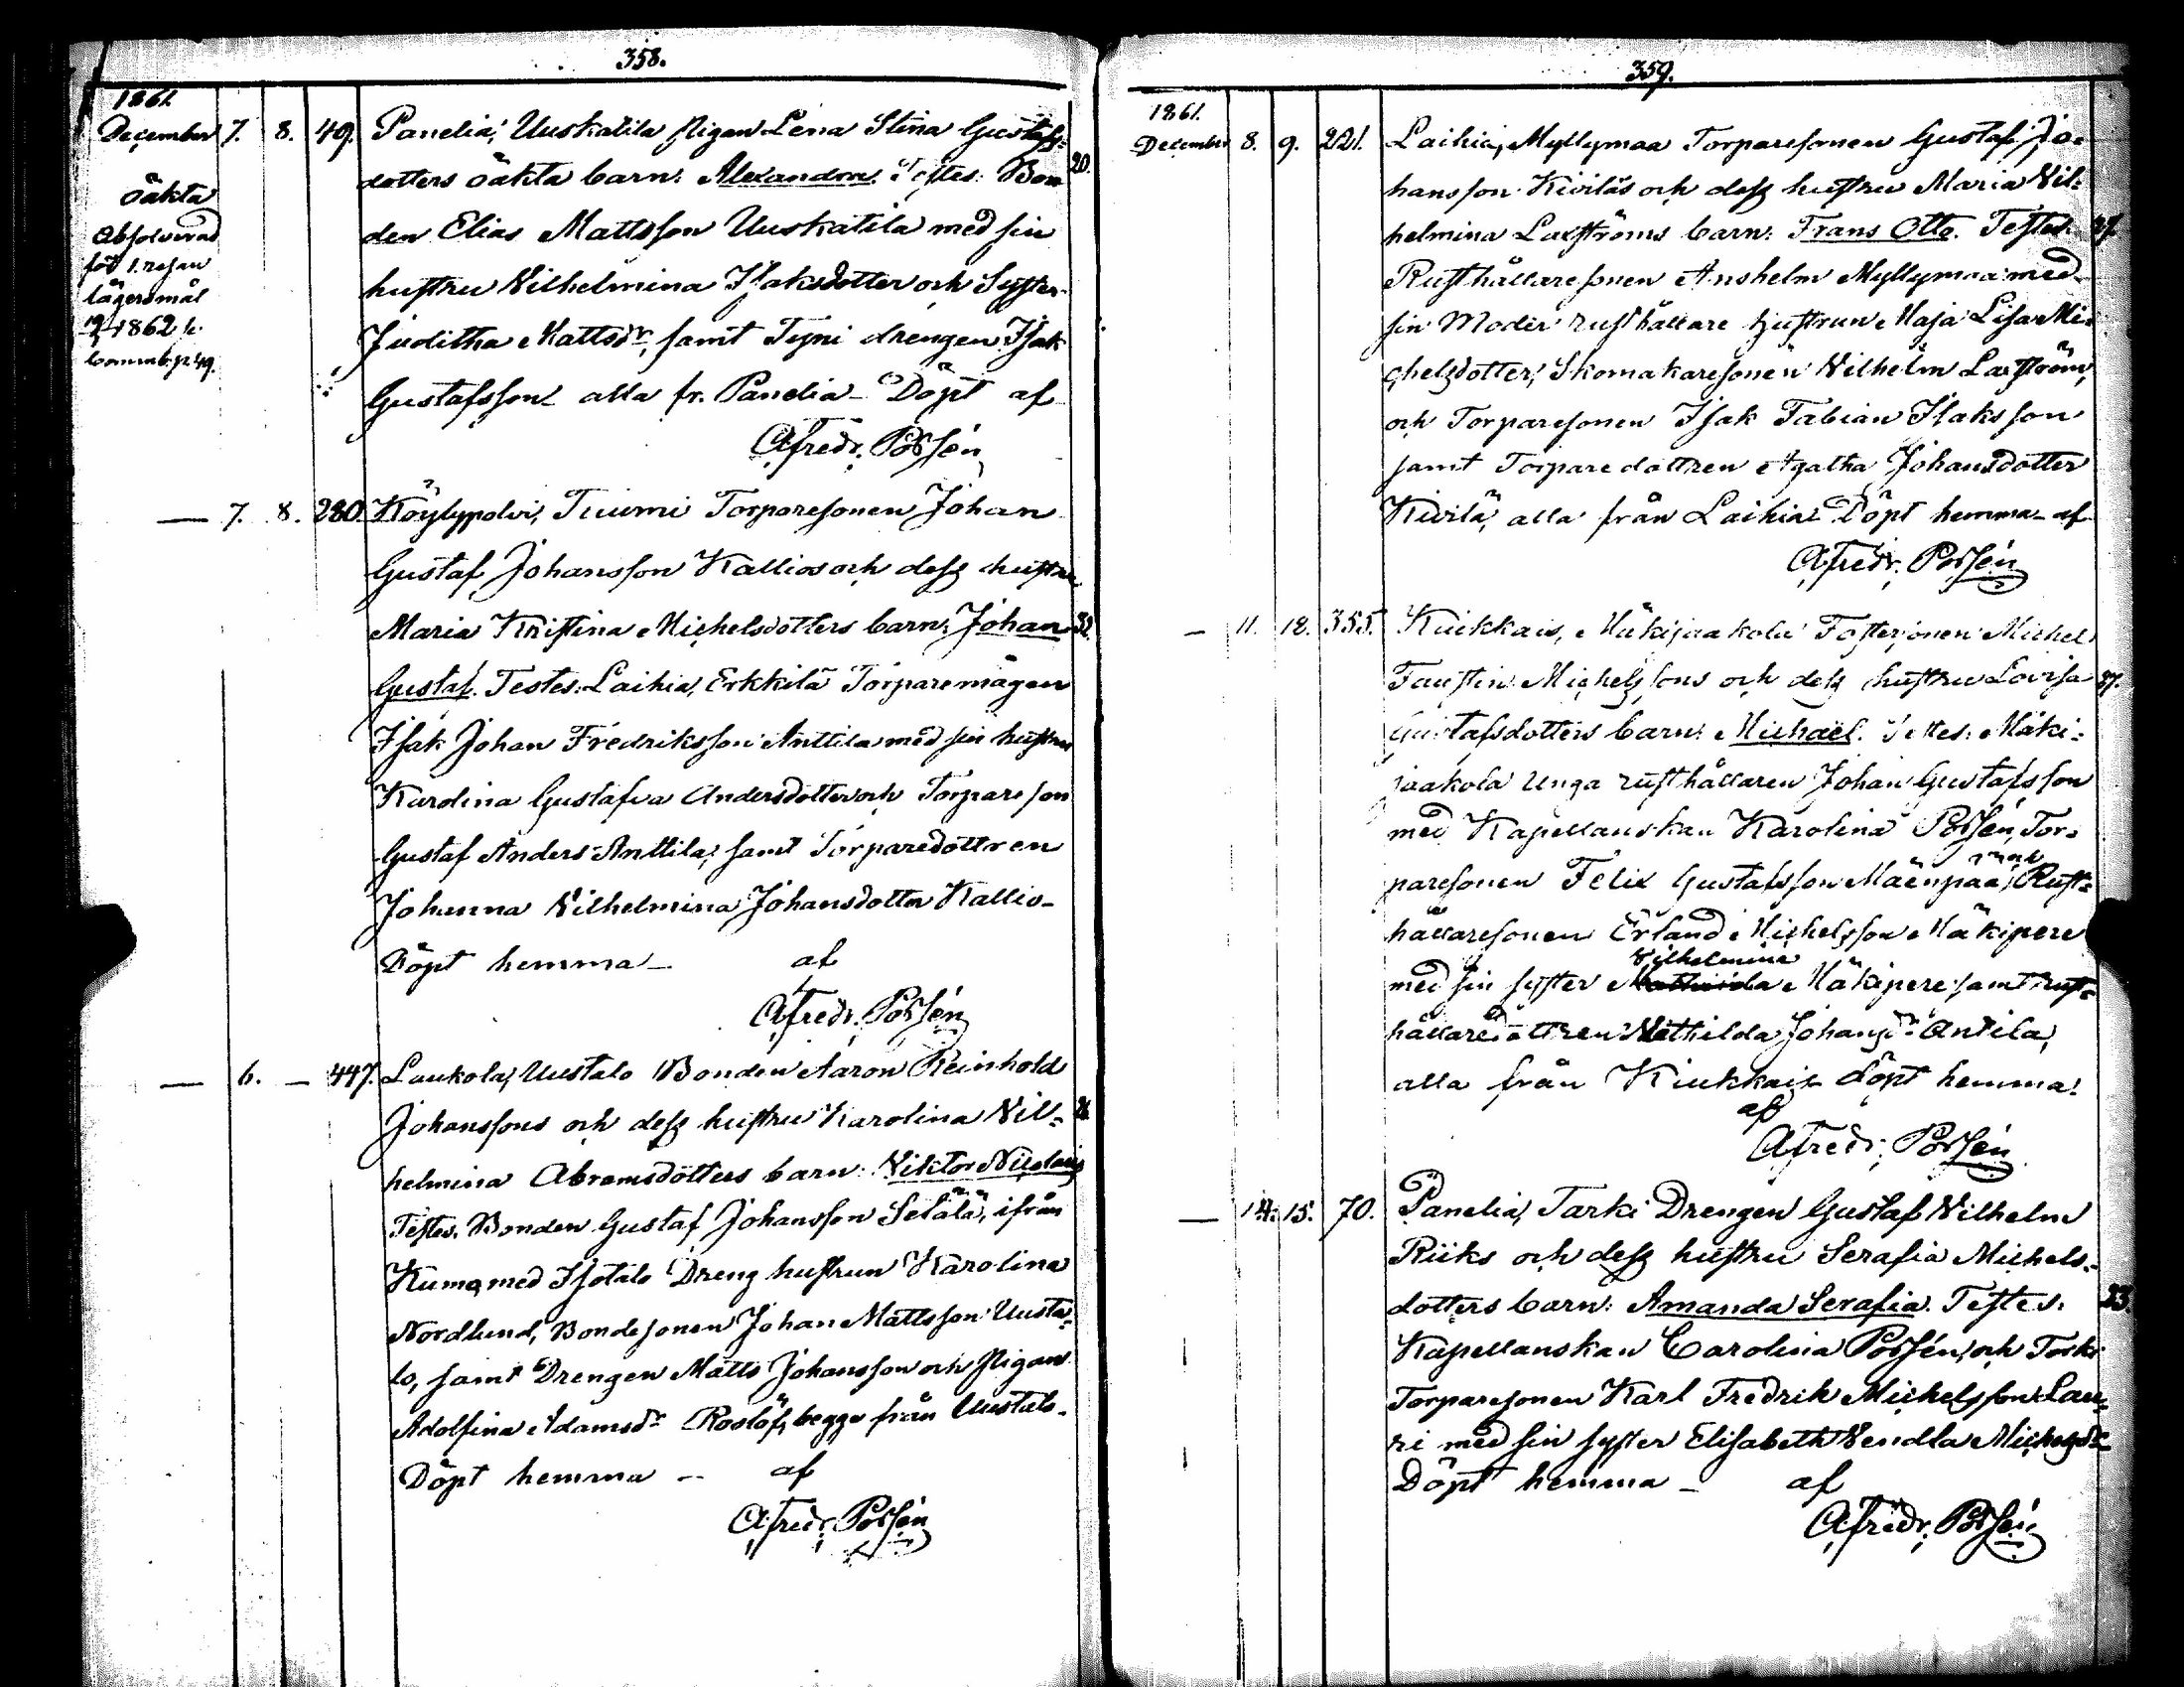 358.
1861.
December 7. 8. 49. Panelia, Uuskatila Pigan Lena Stina Gustafs-
dotters oäkta barn: Alexandra. Testes: Bon- 20.
den Elias Mattsson Uuskatila med sin
hustru Vilhelmina Isaksdotter och Syster
Juditha Mattsdr, samt Tyni drengen Isak
Gustafsson alla fr. Panelia – Döpt af
Afredr. Possén
oäkta
Absolverad
för 1. resan
lägersmål
1862
Commb. p. 49.
— 7. 8. 280. Köylypolvi, Tuumi Torparesonen Johan
Gustaf Johansson Kallios och dess hustru
Maria Kristina Michelsdotters barn: Johan 32.
Gustaf. Testes: Laihia, Erkkilä Torparemågen
Isak Johan Fredriksson Anttila med sin hustru
Karolina Gustafva Andersdotter och Torpareson
Gustaf Anders Anttila, samt Torparedottren
Johanna Vilhelmina Johansdotter Kallio –
Döpt hemma – af
Afredr. Possén
— 6. — 447. Laukola, Uustalo Bonden Aaron Reinhold
Johanssons och dess hustru Karolina Vil-
helmina Abramsdotters barn: Viktor Nicolaus
Testes. Bonden Gustaf Johansson Selälä, ifrån
Kumo, med Isotalo Dreng hustrun Karolina
Nordlund, Bondesonen Johan Mattsson Uusta-
lo, samt Drengen Matts Johansson och Pigan
Adolfina Adamsdr Roslöf, begge från Uustalo.
Döpt hemma – af
Afredr. Possén
359.
1861.
December 8. 9. 221. Laihia, Myllymaa Torparesonen Gustaf Jo-
hansson Kiviläs och dess hustru Maria Vil-
helmina Laxströms barn: Frans Otto. Testes.
Rusthållaresonen Anshelm Myllymaa med
sin Moder rusthållare hustrun Maja Lisa Mi-
chelsdotter, Skomakaresonen Vilhelm Laxström,
och Torparesonen Isak Fabian Isaksson
samt Torparedottren Agatha Johansdotter
Kivilä, alla från Laihia. Döpt hemma – af
Afredr. Possén
— 11. 12. 355. Kiukkais, Mäkijaakola Fostersonen Michel
Faustin Michelssons och dess hustru Lovisa 27.
Gustafsdotters barn: Michaël. Testes: Mäki-
jaakola Unga rusthållaren Johan Gustafsson
med Kapellanskan Karolina Possén, Tor-
paresonen Felix Gustafsson Mäenpää, Rust-
hållaresonen Erland Michelsson Mäkipere
Vilhelmina
med sin syster Mathilda Mäkipere samt rust-
hållaredottren Mathilda Johansdr Antila,
alla från Kiukkais. döpt hemma.
af
Afredr. Possén
— 14. 15. 70. Panelia, Tarki Drengen Gustaf Vilhelm
Riiks och dess hustru Serafia Michels-
dotters barn: Amanda Serafia. Testes. 23.
Kapellanskan Carolina Possén, och Torki
Torparesonen Karl Fredrik Michelsson Lau-
ri med sin syster Elisabeth Vendla Michelsdr
Döpt hemma – af
Afredr. Possén